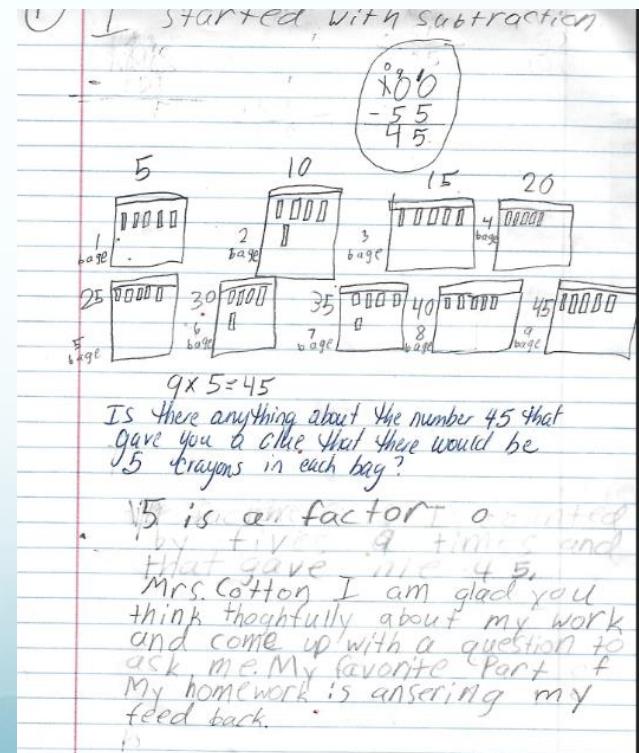 ① I started with subtraction
100
- 55
45
5 10 15 20
1 bage
2 bage
3 bage
4 bage
25 30 35 40 45
5 bage
6 bage
7 bage
8 bage
9 bage
9x5=45
Is there anything about the number 45 that
gave you a clue that there would be
5 crayons in each bag?
5 is a factor
by five 9 and
that gave me 45.
Mrs. Cotton I am glad you
think thoghtfully about my work
and come up with a question to
ask me. My favorite Part f
My homework is ansering my
feed back.